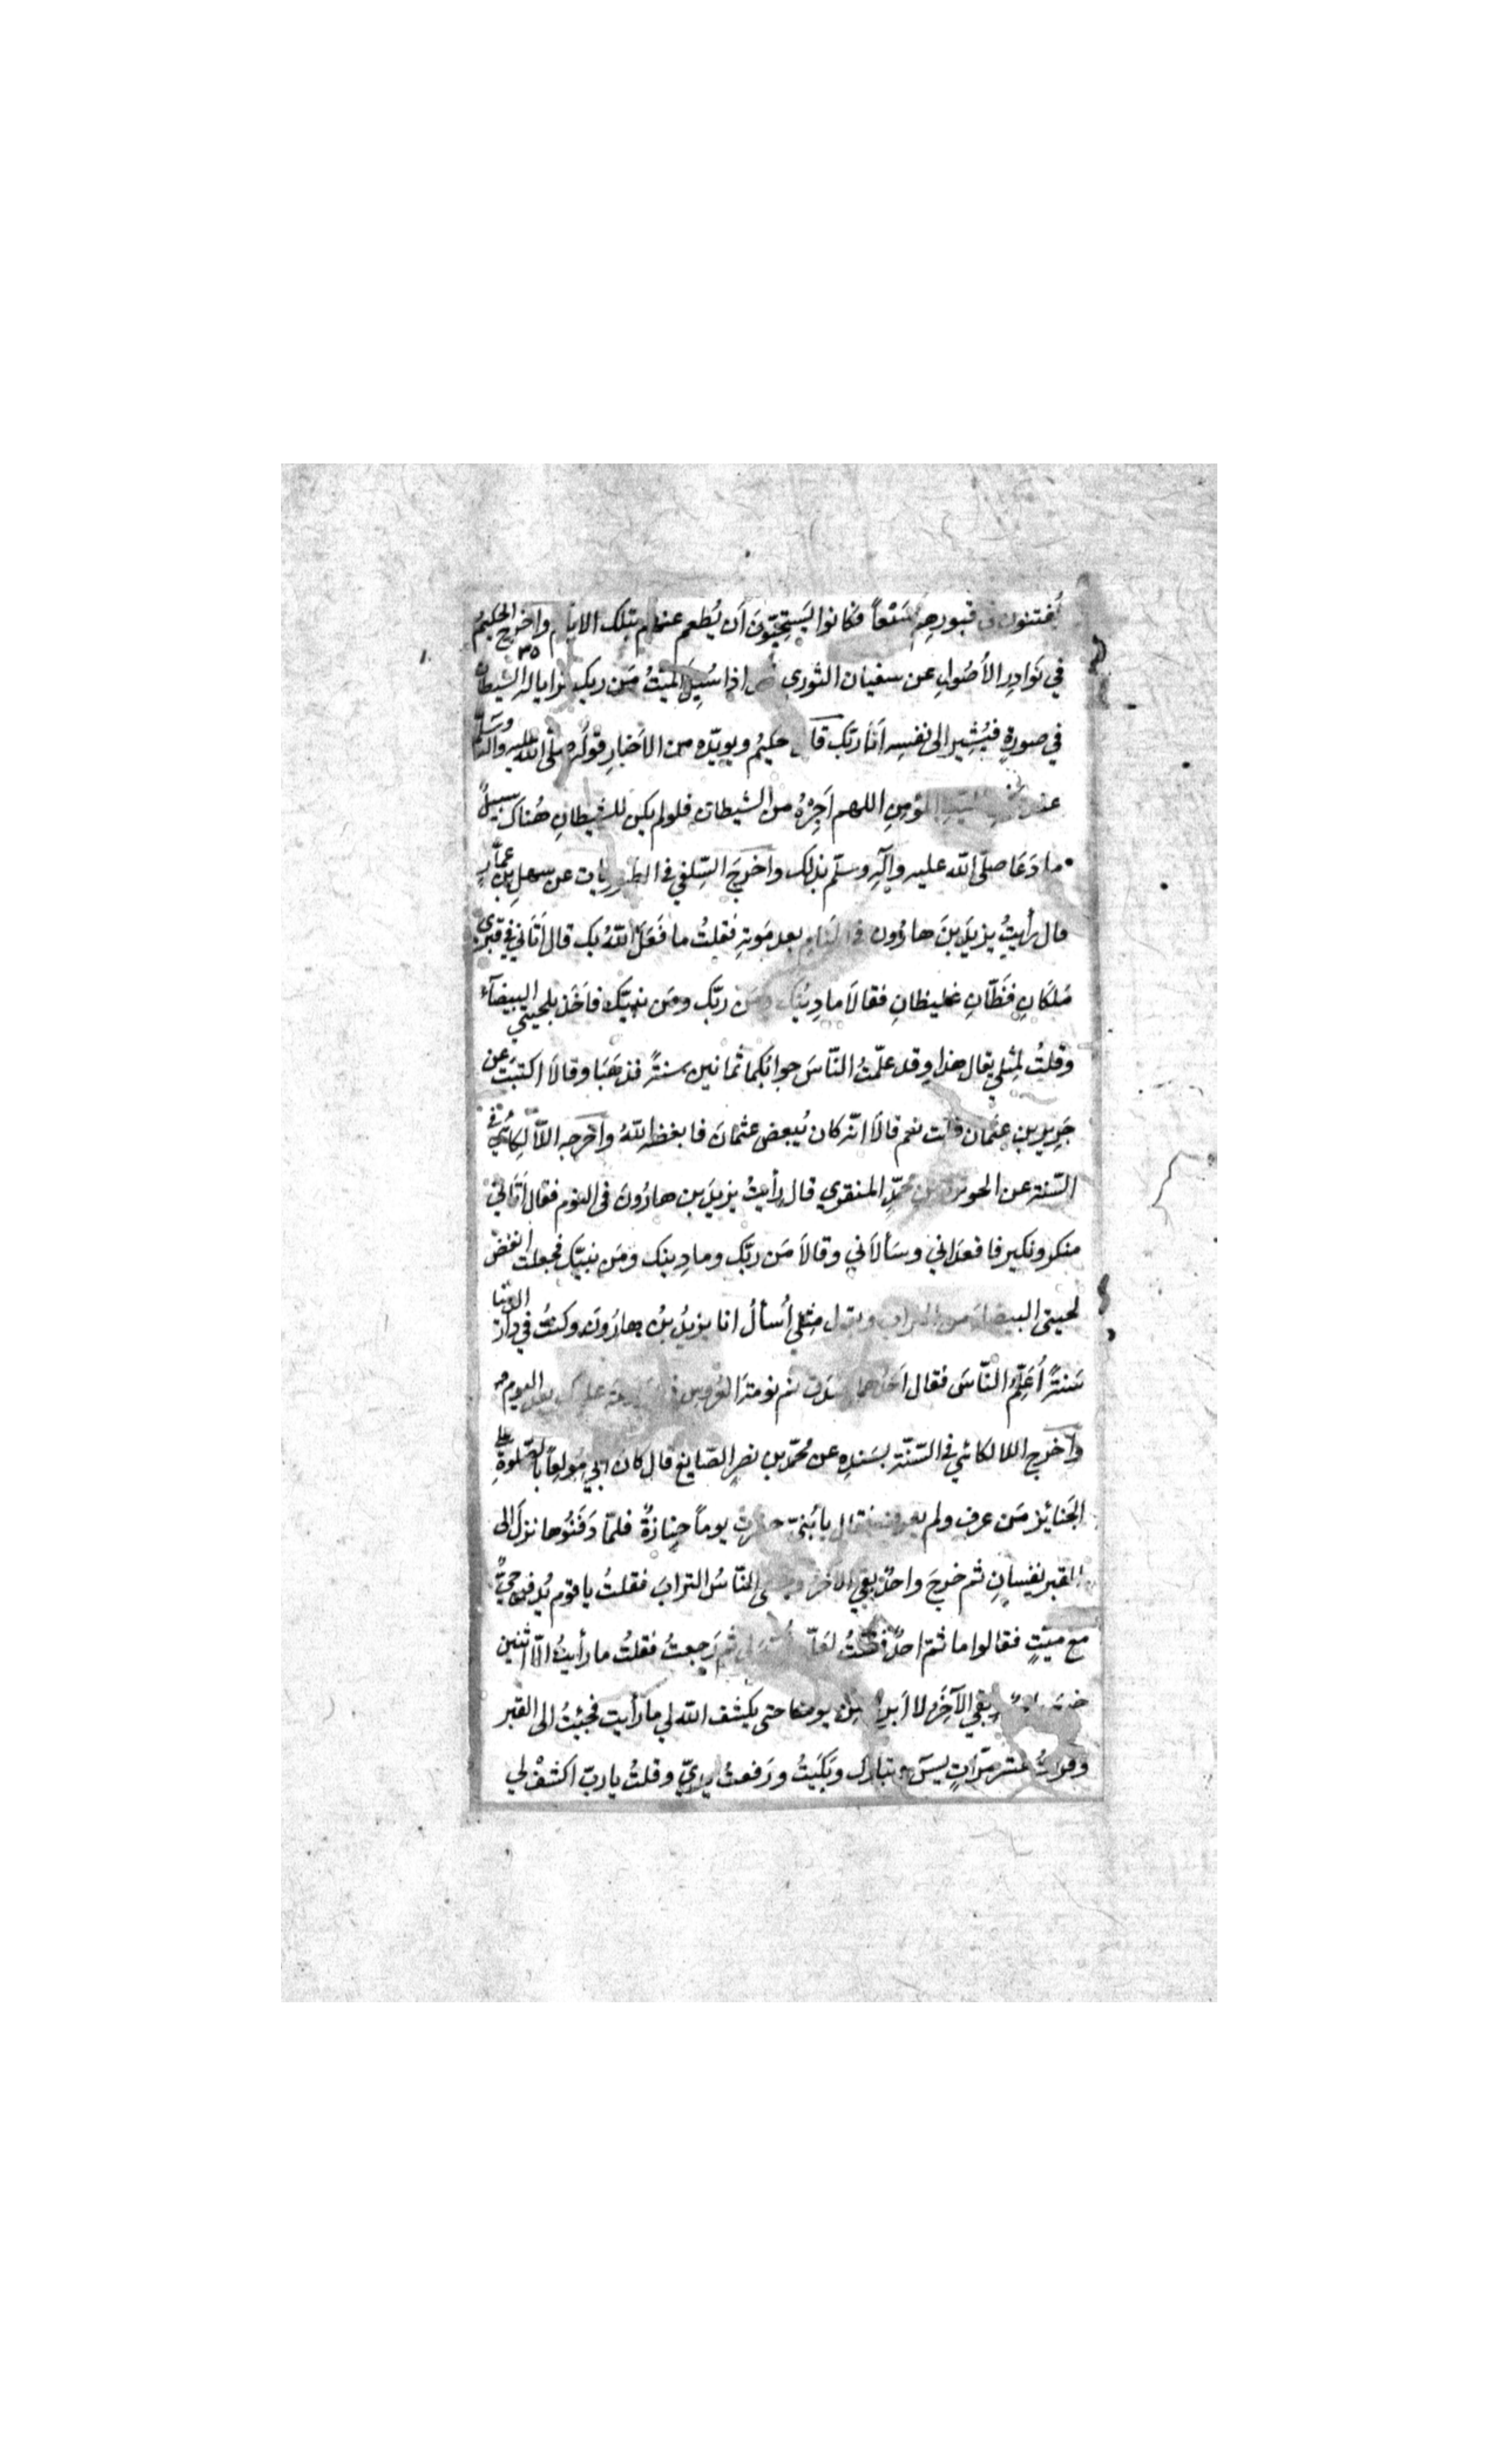 يُفتنون في قبورهم سَبْعاً فكانوا يَستحِبّونَ أن يُطعم عنهم بتلك الايام واخرج الحكيمُ
٣٥
في نَوادِرِ الأصُولِ عن سفيان الثوري اذا سُئِلَ الميّتُ مَن ربك ترايا له الشيطان
في صورةٍ فيُشِير الى نفسِه اَنا رَبّك قال حكيمُ ويويّده من الاَخبارِ قولُه صلّى الله عليه وآله وسَلّم
عند المؤمِنِ اللهم اَجِرْهُ من الشيطان فلولم يكن للشيطانِ هُناك سبيلٌ
ما دَعَا صلّى الله عليه وآلِه وسلّم بذلك واخرَجَ السِّلفي في الطيوريات عن سهلِ بن عمّار
قال رأيتُ يزيدَ بنَ هارُون في المَنام بعد مَوته فقلتُ ما فَعَلَ اللّهُ بك قال اَتَاني في قبري
مَلَكَانِ فَظّانِ غليظانِ فقالاَ ما دِينُك ومَن ربّك ومَن نبيّك فاَخَذ بلحيتي البيضآء
وقلتُ لِمِثلي يقال هذا وقد علّمتُ النّاسَ جوابَكما ثمانين سنةً فذهَبَا وقالاَ اكتبتَ عن
جَرِير بن عثمان قلت نعم قالاَ انّه كان يُبعض عثمانَ فابغظه اللّهُ واخرجه اللاّلِكائيُّ في
السّنة عن الحوثرة بن محمّدٍ المنقري قال رأيتُ يزيدَ بن هارُونَ في النوم فقال اَتَاني
منكر ونكير فاقعدَاني وسَألاَني وقالاَ مَن ربّك وما دِينك ومَن نبيّك فجعلت انفض
لحيتي البيضاء من التراب وقول مِثلي اُسألُ انا يزيدُ بنُ هارُونَ وكنتُ في دار الدنيا
سَنةً اُعَلِّمُ النّاسَ فقال اَحَدُهما صدق نم نومةَ العُروس عليك بعد اليوم
واَخرج اللالكائي في السّنّة بسَندِه عن محمّد بن نصرٍ الصّايغ قال كان ابي مُولِعاً بالصّلوةِ على
الجَنائِز مَن عرف ولم يعرف فقال يا بُنيّ حضرتُ يوماً جِنازةً فلمّا دَفَنُوها نزلَ الى
القبر نفسانِ ثم خرجَ واحدٌ بقي الآخر وحثى النّاسُ الترابَ فقلتُ يا قوم يُدفن حيٌّ
مع ميّتٍ فقالوا ما ثمّ احدٌ فقلتُ لعلّه ثم رَجعتُ فقلتُ ما رأيتُ الاّ اثنين
بقي الآخَرُ لا اَبرح من يومنا حتى يكشف الله لي ما رأيت فجئتُ الى القبر
وقرأتُ عشر مرّاتٍ يسَ وتبارك وبَكَيتُ ورَفعتُ يديّ وقلتُ يا ربّ اكشفْ لي